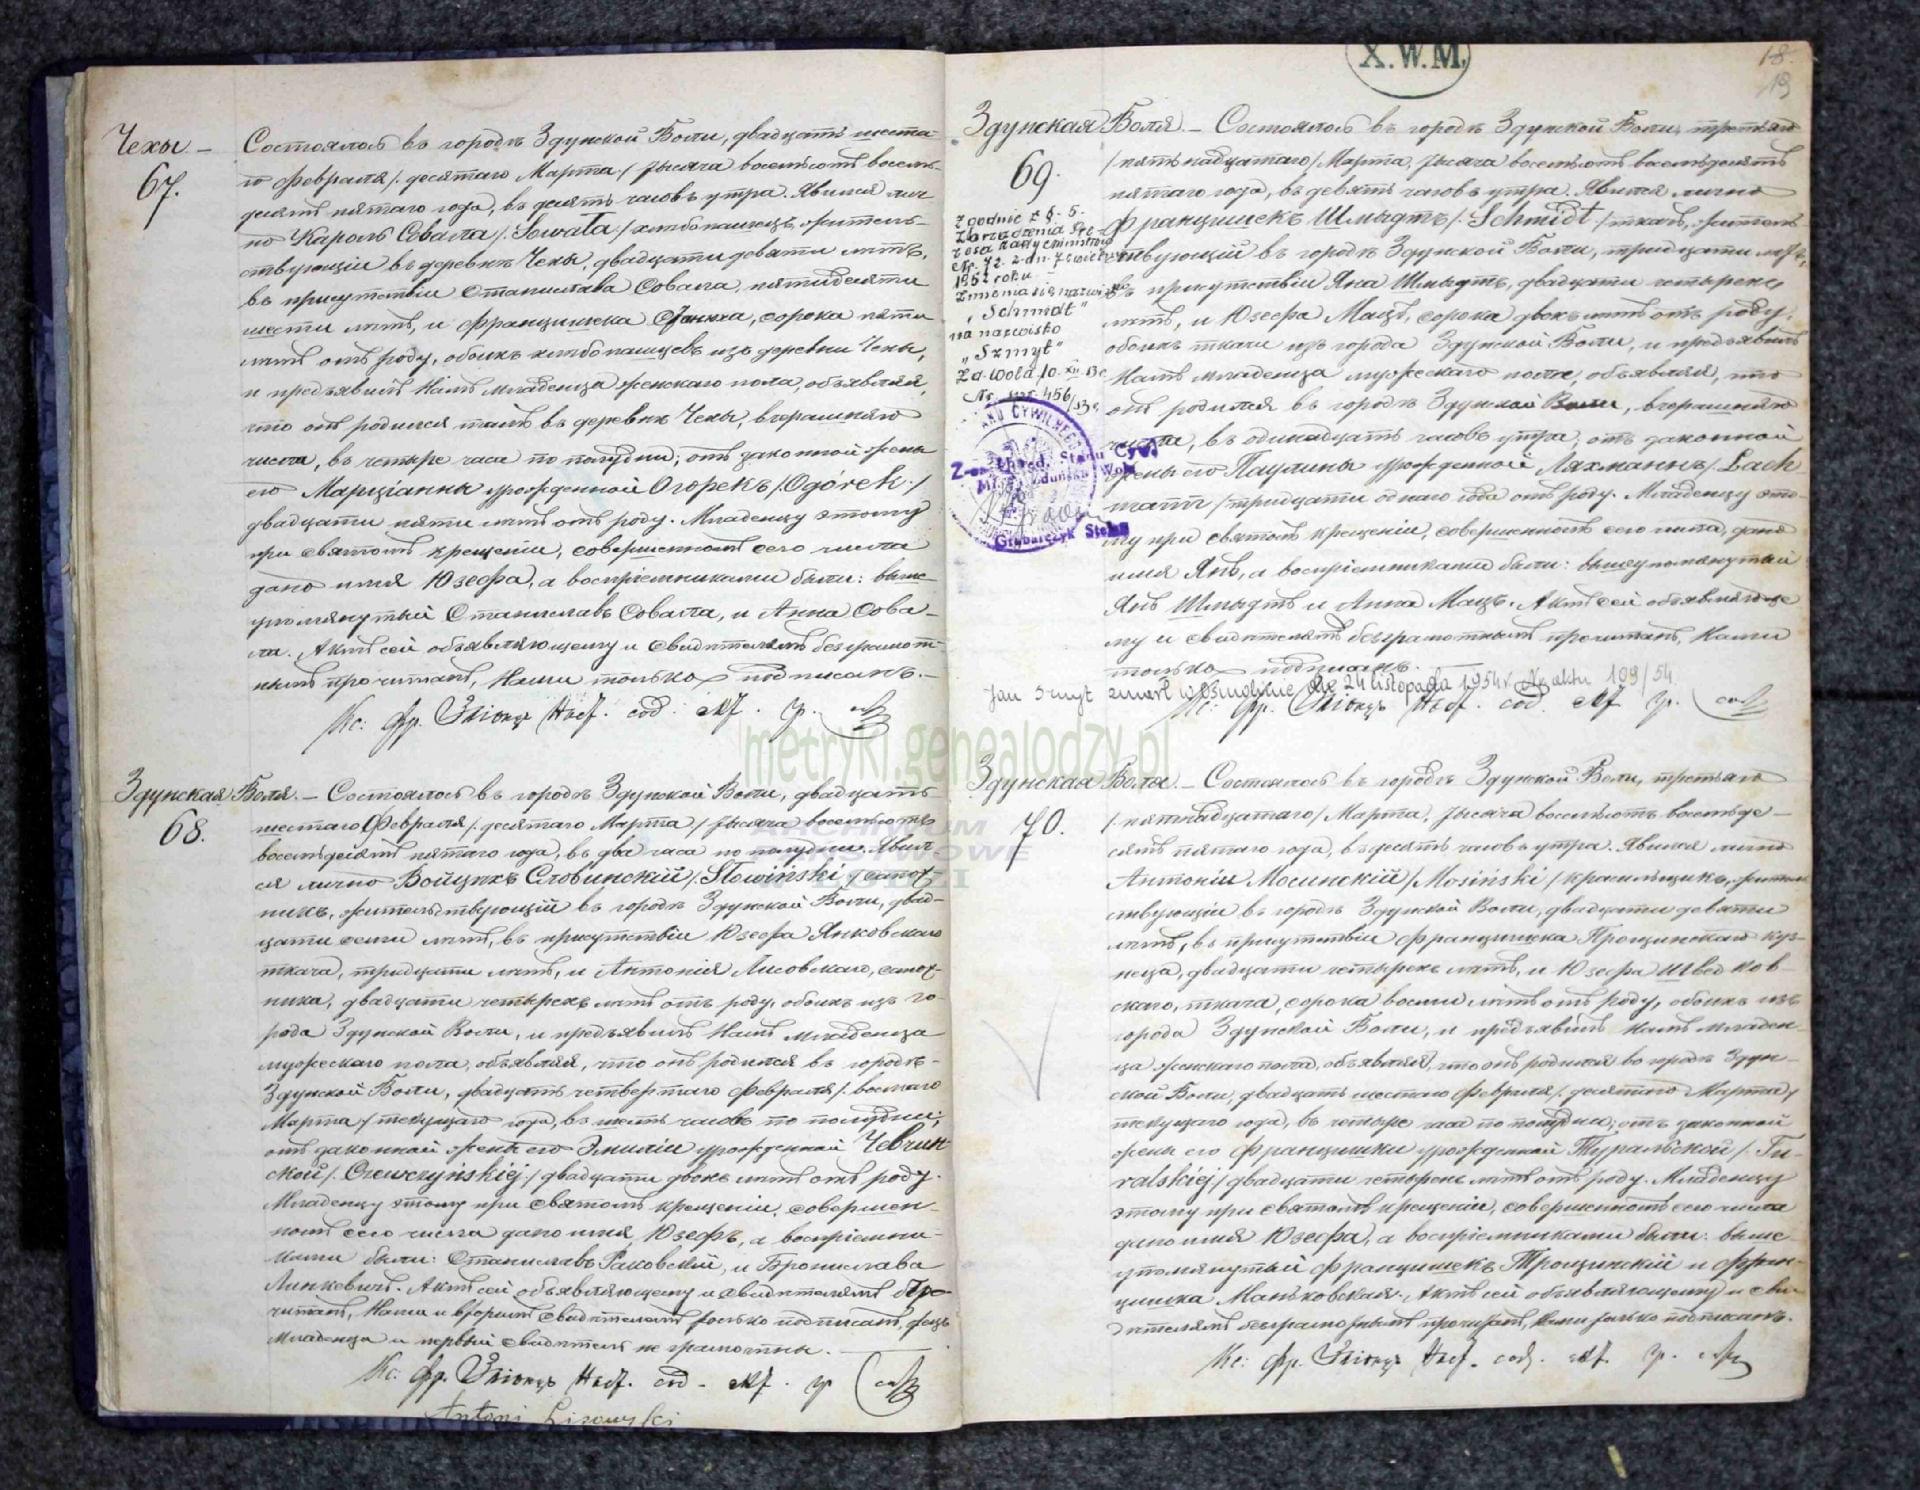 Чехы. —
67.
Состоялось въ городѣ Здунской Воли, двадцать шеста-
го Февраля /: десятаго Марта / тысяча восемьсотъ восемь-
десятъ пятаго года, въ десять часовъ утра. Явился лич-
но Кароль Совала /: Sowała / хлѣбопашецъ, житель-
ствующій въ деревнѣ Чехы, двадцати девяти лѣтъ,
въ присутствіи Станислава Совала, пятидесяти
шести лѣтъ, и Францишка сорока пяти
лѣтъ отъ роду, обоихъ хлѣбопашцевъ изъ деревни Чехы,
и предъявилъ Намъ младенца женскаго пола, объявляя,
что онъ родился тамъ въ деревнѣ Чехы, вчерашняго
числа, въ четыре часа по полудни; отъ законной жены
его Марціанны урожденной Огорекъ /: Ogórek :/
двадцати пяти лѣтъ отъ роду. Младенцу этому
при святомъ крещеніи, совершенномъ сего числа
дано имя Юзефа, а воспріемниками были: выше-
упомянутый Станиславъ Совала, и Анна Сова-
ла. Актъ сей объявляющему и свидѣтелямъ безграмот-
нымъ прочитанъ, Нами только подписанъ. —
Кс: Фр. Наст. сод. А. Гр.
Здунская Воля. — Состоялось въ городѣ Здунской Воли, двадцать
68.
шестаго Февраля /: десятаго Марта / тысяча восемьсотъ
восемьдесятъ пятаго года, въ два часа по полудни. Явил-
ся лично Войцѣхъ Словинскій /: Słowiński / сапож-
никъ, жительствующій въ городѣ Здунской Воли, двад-
цати семи лѣтъ, въ присутствіи Юзефа Янковскаго
ткача, тридцати лѣтъ, и Антонія Лисовскаго, сапож-
ника, двадцати четырехъ лѣтъ отъ роду, обоихъ изъ го-
рода Здунской Воли, и предъявилъ Намъ младенца
мужескаго пола, объявляя, что онъ родился въ городѣ
Здунской Воли, двадцать четвертаго Февраля /: восьмаго
Марта / текущаго года, въ шесть часовъ по полудни;
отъ законной жены его Эмиліи урожденной Чевчин-
ской /: Czewczyńskiej :/ двадцати двохъ лѣтъ отъ роду.
Младенцу этому при святомъ крещеніи, совершен-
номъ сего числа дано имя Юзефъ, а воспріемни-
ками были: Станиславъ Раковскій, и Бронислава
Линкевичъ. Актъ сей объявляющему и свидѣтелямъ про-
читанъ, Нами и вторымъ свидѣтелемъ только подписанъ, отецъ
младенца и первый свидѣтель не грамотны. —
Кс: Фр. Наст. сод. А. Гр.
Antoni Lisowski
X.W.M.
18.
19
Здунская Воля. — Состоялось въ городѣ Здунской Воли, третьяго
69.
/ пятнадцатаго / Марта, тысяча восемьсотъ восемьдесятъ
пятаго года, въ девять часовъ утра. Явился лично
Францишекъ Шмыдтъ /: Schmidt / ткачъ, житель-
ствующій въ городѣ Здунской Воли, тридцати лѣтъ,
въ присутствіи Яна Шмыдтъ, двадцати четырехъ
лѣтъ, и Юзефа Мацъ, сорока двохъ лѣтъ отъ роду,
обоихъ ткачи изъ города Здунской Воли, и предъявилъ
Намъ младенца мужескаго пола, объявляя, что
онъ родился въ городѣ Здунской Воли, вчерашняго
числа, въ одинадцать часовъ утра, отъ законной
жены его Паулины урожденной Ляхманнъ /: Lach
mann / тридцати одного года отъ роду. Младенцу это-
му при святомъ крещеніи, совершенномъ сего числа, дано
имя Янъ, а воспріемниками были: вышеупомянутый
Янъ Шмыдтъ и Анна Мацъ. Актъ сей объявляюще-
му и свидѣтелямъ безграмотнымъ прочитанъ, Нами
только подписанъ. —
Zgodnie z §. 5.
Zarządzenia Pre-
zesa Rady Ministrów
Nr. 72 z dn.
1952 roku
zmienia się nazwisko
„Schmidt"
na nazwisko
„Szmyt"
Zd. Wola, 10. XII
Urzęd. Stanu Cyw.
Zduńska Wola
Grabarczyk
Jan Szmyt zmarł dn. 24 listopada 1954r Nr aktu 109/54.
Кс: Фр. Наст. сод. А. Гр.
Здунская Воля. — Состоялось въ городѣ Здунской Воли, третьяго
70.
/: пятнадцатаго / Марта, тысяча восемьсотъ восемьде-
сятъ пятаго года, въ десять часовъ утра. Явился лично
Антоній Мосинскій / Mosiński / красильщикъ, житель-
ствующій въ городѣ Здунской Воли, двадцати девяти
лѣтъ, въ присутствіи Францишка Трощинскаго куз-
неца, двадцати четырехъ лѣтъ, и Юзефа Шведков-
скаго, ткача, сорока восьми лѣтъ отъ роду, обоихъ изъ
города Здунской Воли, и предъявилъ Намъ младен-
ца женскаго пола, объявляя, что онъ родился въ городѣ Здун-
ской Воли, двадцать шестаго Февраля /: десятаго Марта /
текущаго года, въ четыре часа по полудни; отъ законной
жены его Францишки урожденной Туральской /: Tu-
ralskiej / двадцати четырехъ лѣтъ отъ роду. Младенцу
этому при святомъ крещеніи, совершенномъ сего числа
дано имя Юзефа, а воспріемниками были: выше-
упомянутый Францишекъ Трощинскій и Фран-
цишка Маньковская. Актъ сей объявляющему и сви-
дѣтелямъ безграмотнымъ прочитанъ, Нами только подписанъ.
Кс: Фр. Наст. сод. А. Гр.
metryki.genealodzy.pl
ARCHIWUM
PAŃSTWOWE
W ŁODZI